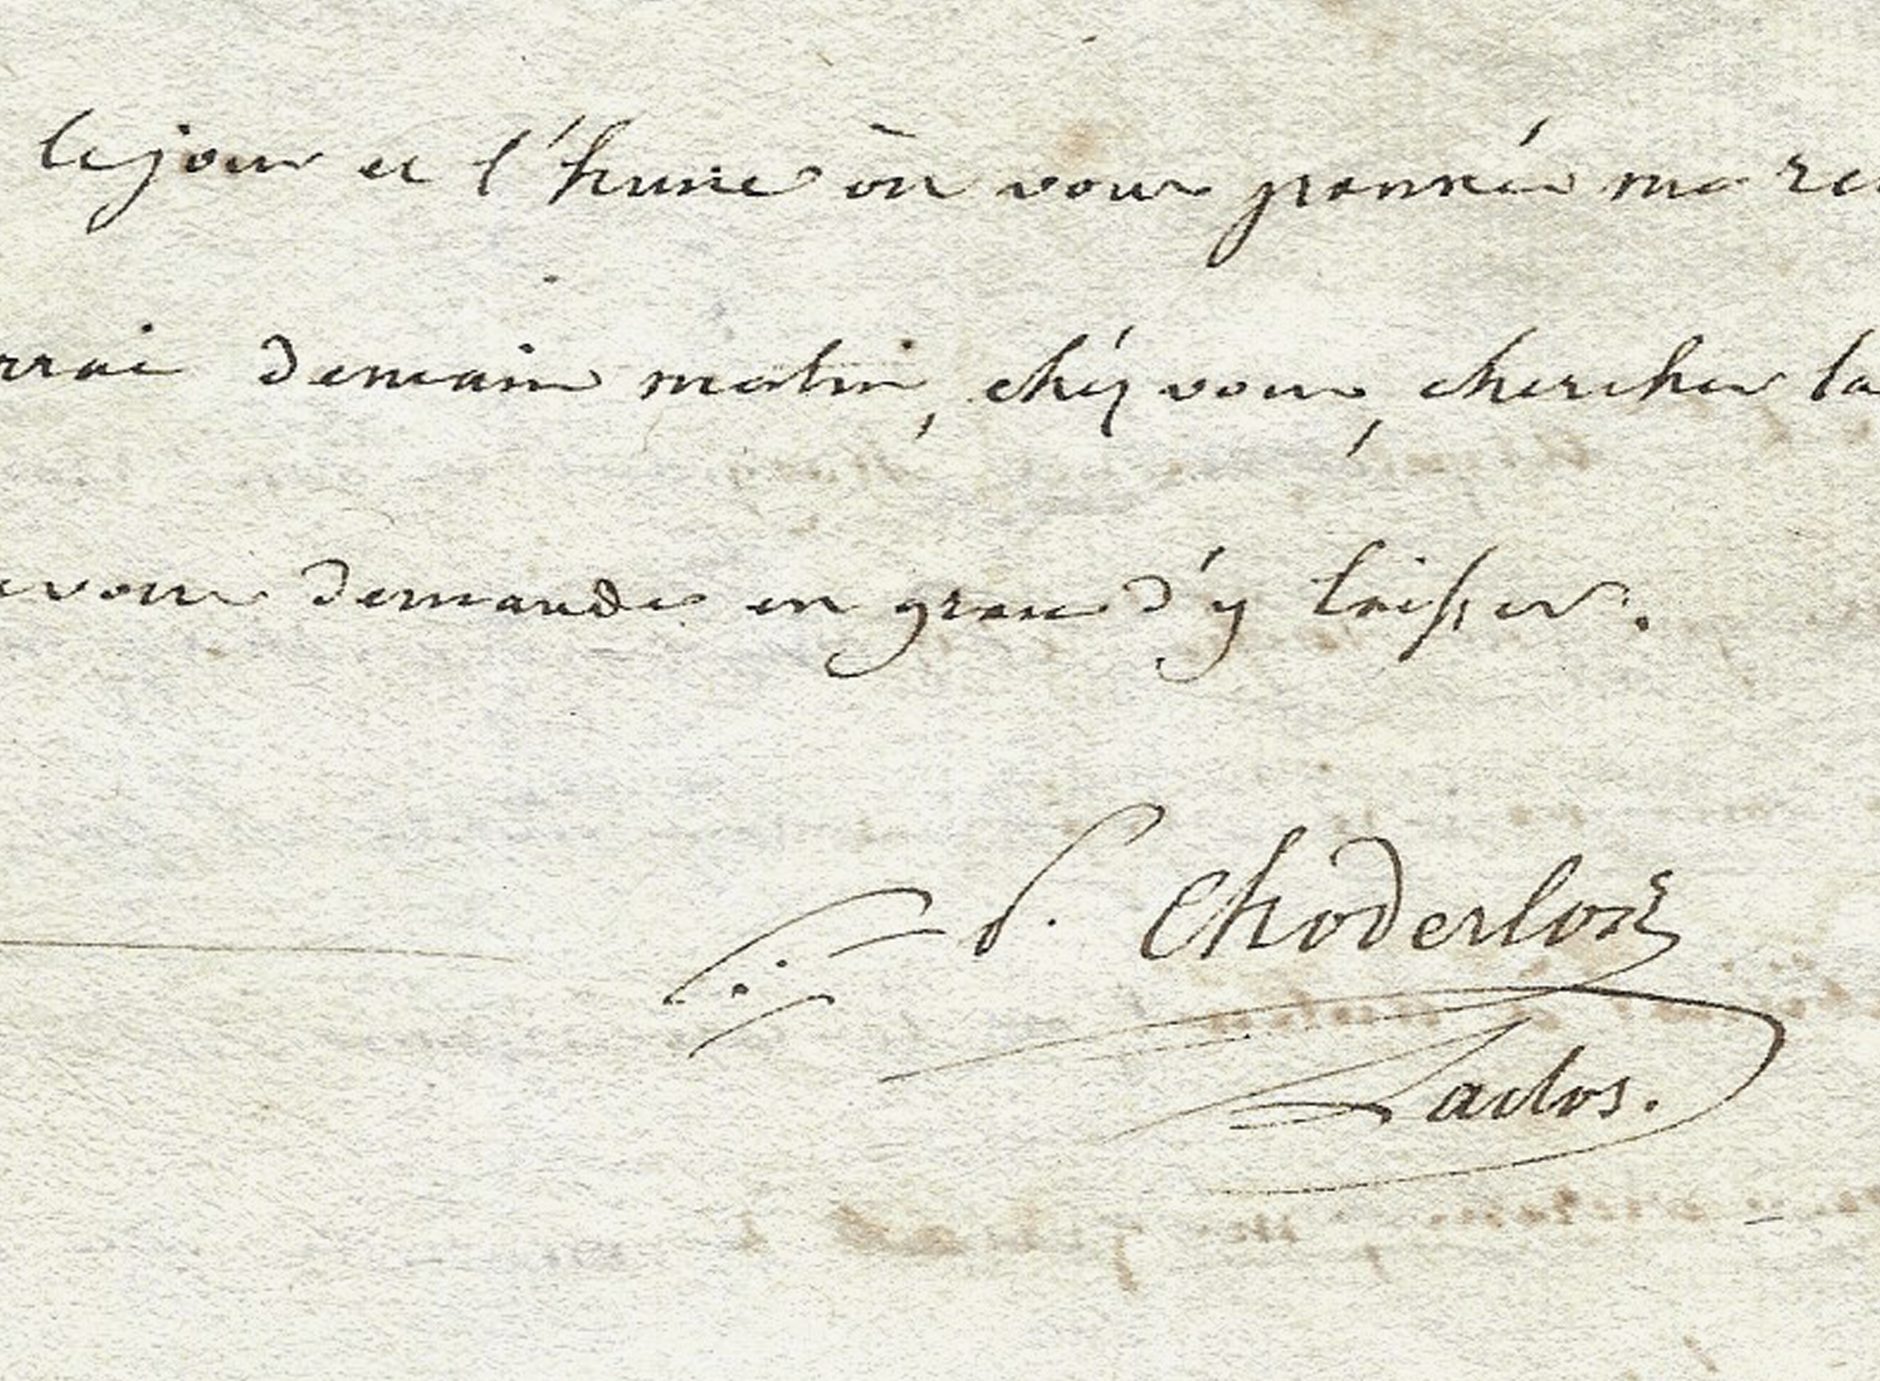 le jour et l'heure où vous pourrés me rec
rrai demain matin, chéz vous, chercher la
vous demande en grace d'y laisser.
P. Choderlos
Laclos.